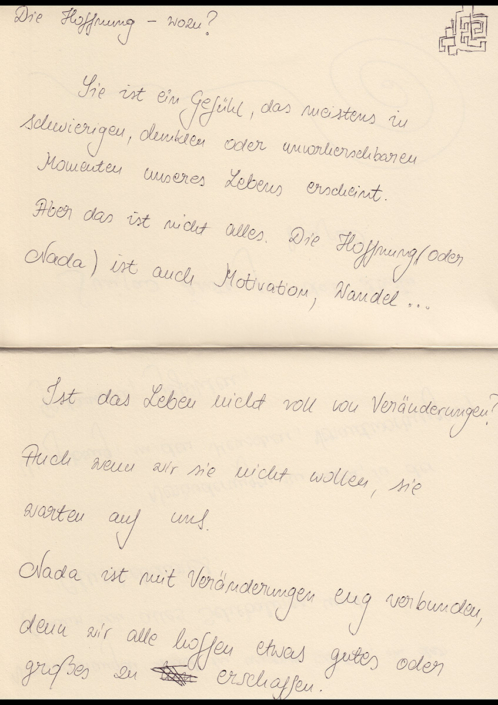 Die Hoffnung – wozu?
Sie ist ein Gefühl, das meistens in
schwierigen, dunklen oder unvorhersehbaren
Momenten unseres Lebens erscheint.
Aber das ist nicht alles. Die Hoffnung (oder
Nada) ist auch Motivation, Wandel ...
Ist das Leben nicht voll von Veränderungen?
Auch wenn wir sie nicht wollen, sie
warten auf uns.
Nada ist mit Veränderungen eng verbunden,
denn wir alle hoffen etwas gutes oder
großes zu erschaffen.